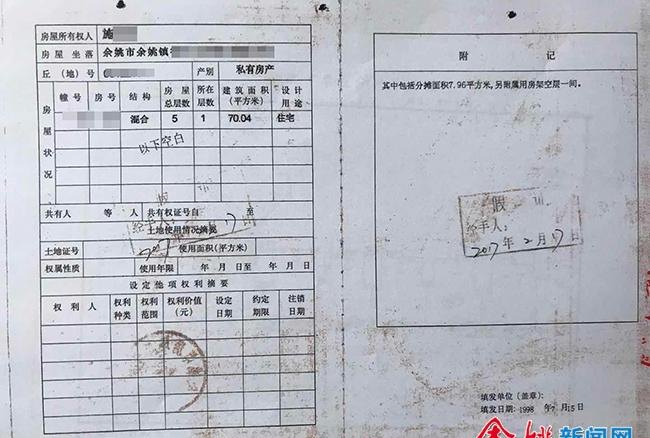 房屋所有权人 施
房屋坐落 余姚市余姚镇
丘(地)号 产别 私有房产
房屋状况
幢号 房号 结构 房屋总层数 所在层数 建筑面积(平方米) 设计用途
混合 5 1 70.04 住宅
以下空白
共有人 等 人 共有权证号自 至
土地使用情况摘要
土地证号 使用面积(平方米)
权属性质 使用年限 年 月 日至 年 月 日
设定他项权利摘要
权利人 权利种类 权利范围 权利价值(元) 设定日期 约定期限 注销日期
经手人:
2017
17
附记
其中包括分摊面积7.96平方米,另附属用房架空层一间。
假
经手人:
2017年2月17日
填发单位(盖章):
填发日期:1998年7月15日
余姚新闻网